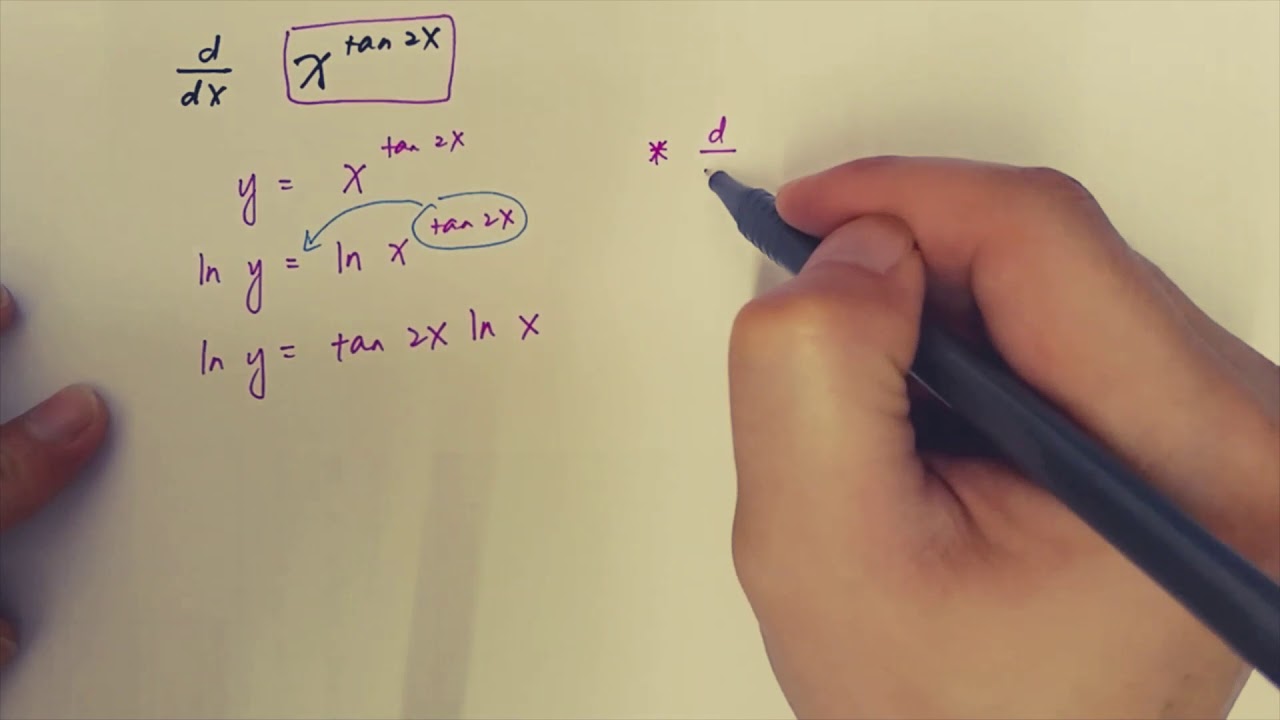 d/dx x^tan 2x
y = x^tan 2x
ln y = ln x^tan 2x
ln y = tan 2x ln x
* d